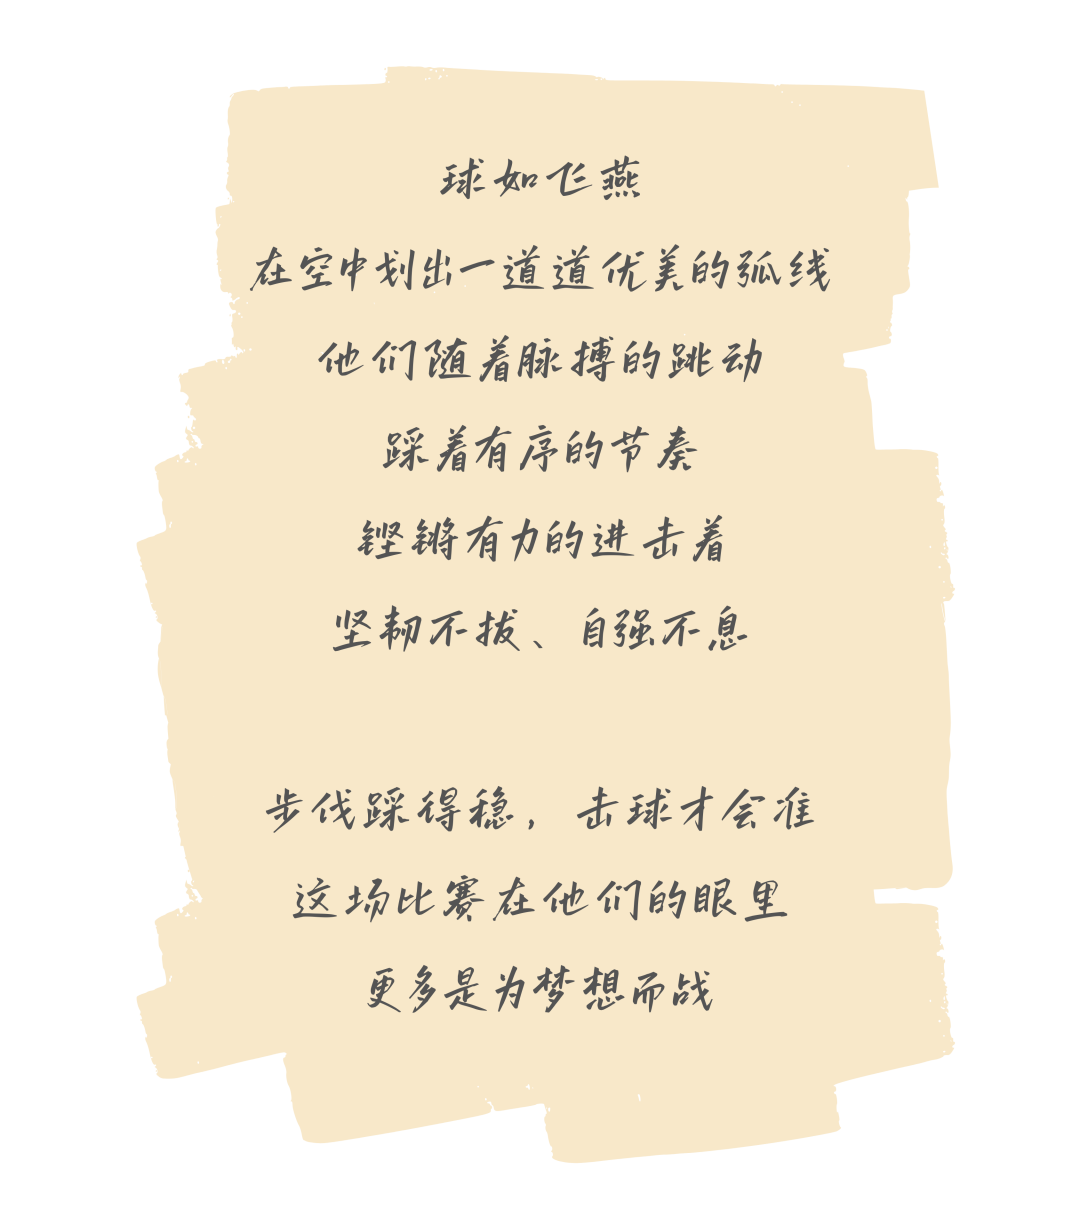 球如飞燕
在空中划出一道道优美的弧线
他们随着脉搏的跳动
踩着有序的节奏
铿锵有力的进击着
坚韧不拔、自强不息
步伐踩得稳，击球才会准
这场比赛在他们的眼里
更多是为梦想而战